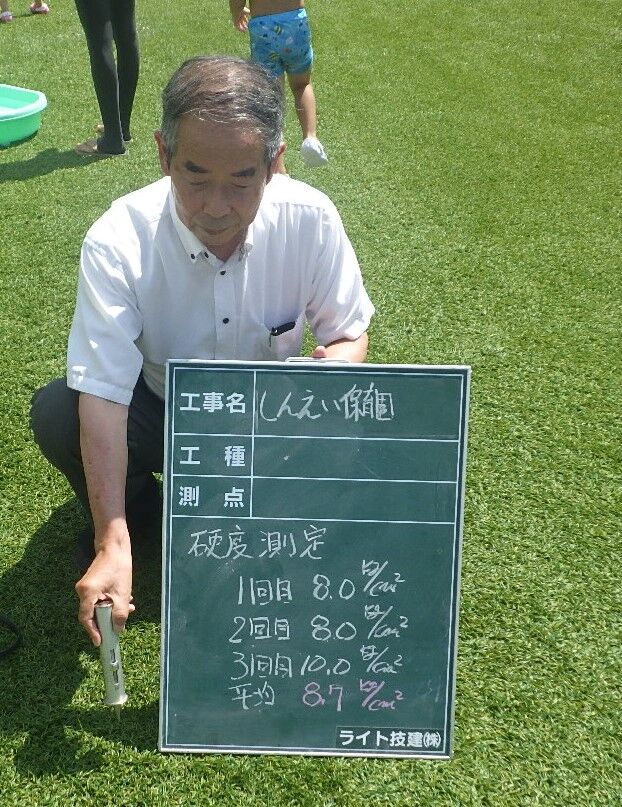 工事名 しんえい保育園
工種
測点
硬度測定
1回目 8.0 kg/cm²
2回目 8.0 kg/cm²
3回目 10.0 kg/cm²
平均 8.7 kg/cm²
ライト技建㈱